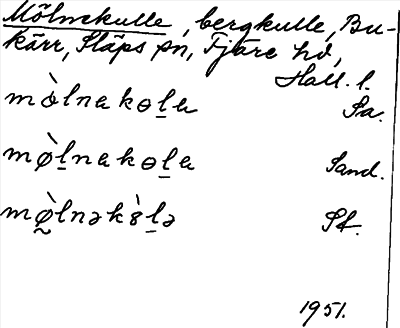 Mölnekulle, bergkulle, Bu-
kärr, Släps sn, Fjäre hd,
Hall. l.
mòlnakɵḻa Sa.
mø̀ḻnakɵḻa Sand.
mø̰̀lnəkɵ̀ḻə Sf.
1951.